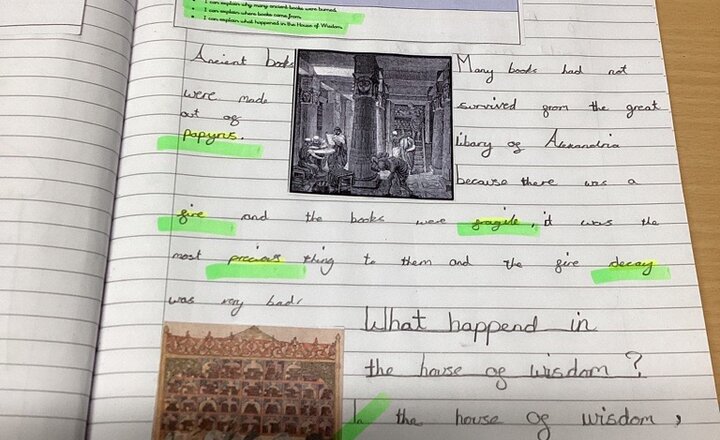 I can explain why many ancient books were burned.
I can explain where books came from.
I can explain what happened in the House of Wisdom.
Ancient books
were made
out of
papyrus.
Many books had not
survived from the great
libary of Alexandria
because there was a
fire and the books were fragile, it was the
most precious thing to them and the fire decay
was very bad.
What happend in
the house of wisdom?
In the house of wisdom,